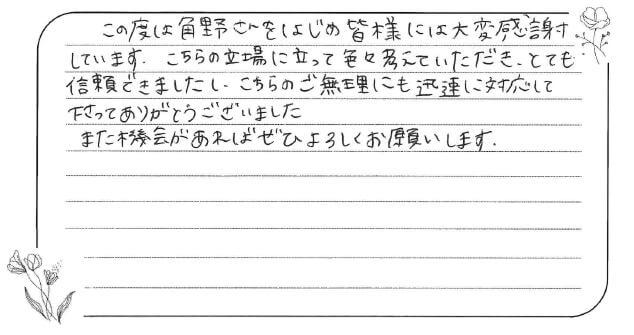 この度は角野さんをはじめ皆様には大変感謝
しています. こちらの立場に立って色々考えていただき、とても
信頼できましたし、こちらのご無理にも迅速に対応して
下さってありがとうございました
また機会があればぜひよろしくお願いします.